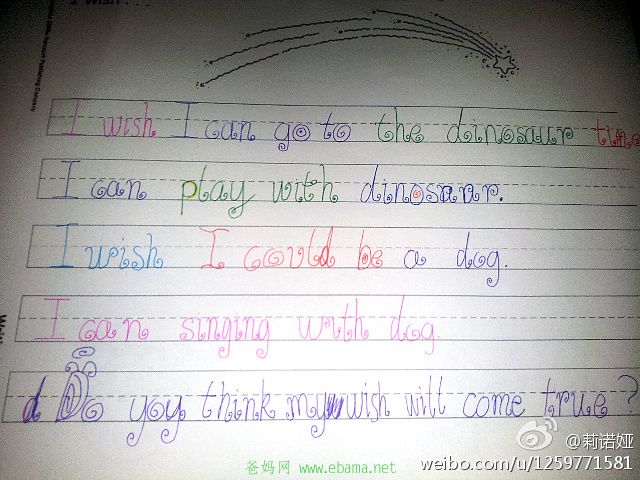 I wish I can go to the dinosaur time
I can play with dinosaur.
I wish I could be a dog.
I can singing with dog.
d Do you think my wish will come true ?
@莉诺娅
爸妈网 www.ebama.net
weibo.com/u/1259771581